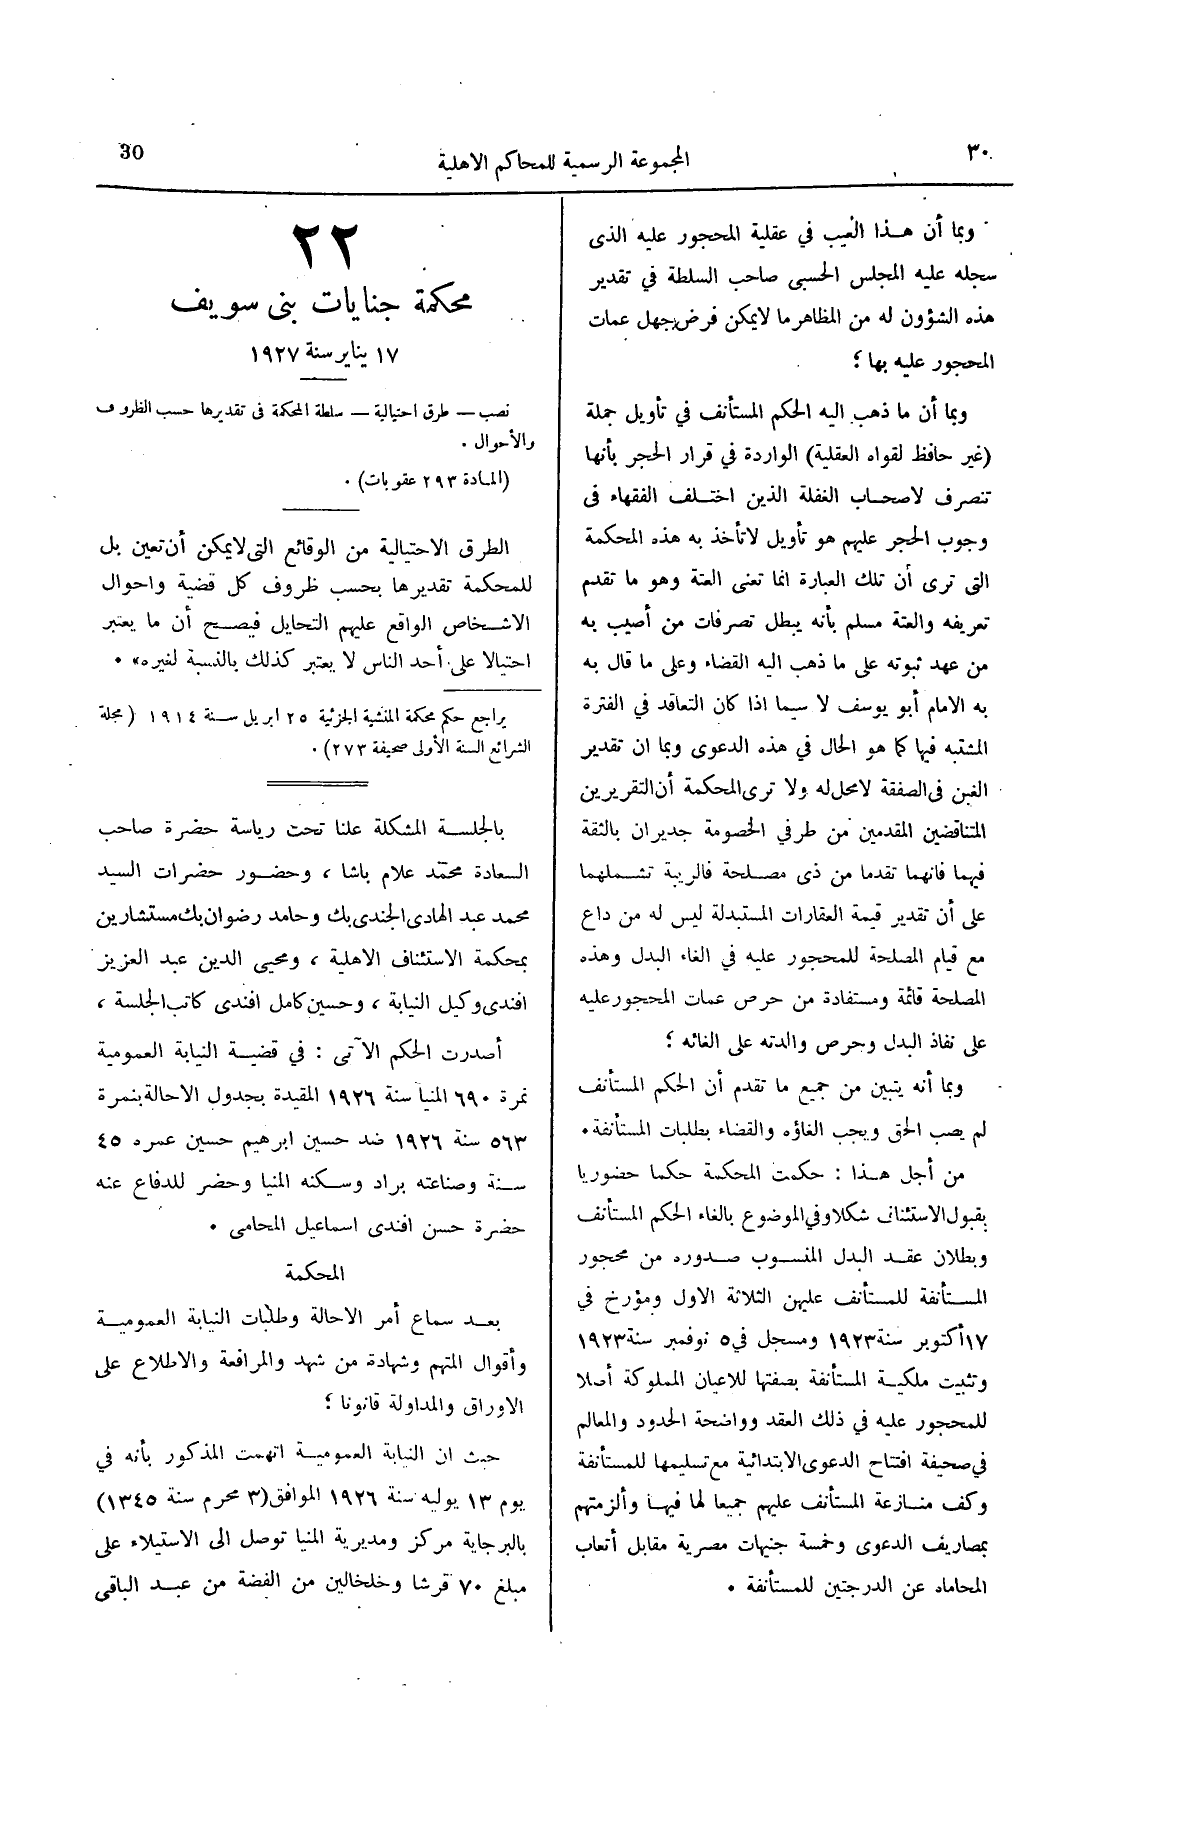 ٣٠
المجموعة الرسمية للمحاكم الاهلية
30
وبما أن هذا العيب في عقلية المحجور عليه الذى
سجله عليه المجلس الحسبى صاحب السلطة في تقدير
هذه الشؤون له من المظاهر ما لايمكن فرض جهل عمات
المحجور عليه بها ؛
وبما أن ما ذهب اليه الحكم المستأنف في تأويل جملة
(غير حافظ لقواه العقلية) الواردة في قرار الحجر بأنها
تنصرف لاصحاب الغفلة الذين اختلف الفقهاء فى
وجوب الحجر عليهم هو تأويل لاتأخذ به هذه المحكمة
التى ترى أن تلك العبارة انما تعنى العتة وهو ما تقدم
تعريفه والعتة مسلم بأنه يبطل تصرفات من أصيب به
من عهد ثبوته على ما ذهب اليه القضاء وعلى ما قال به
به الامام أبو يوسف لا سيما اذا كان التعاقد في الفترة
المشتبه فيها كما هو الحال في هذه الدعوى وبما ان تقدير
الغبن فى الصفقة لامحل له ولا ترى المحكمة أن التقريرين
المتناقضين المقدمين من طرفي الخصومة جديران بالثقة
فيهما فانهما تقدما من ذى مصلحة فالريبة تشملهما
على أن تقدير قيمة العقارات المستبدلة ليس له من داع
مع قيام المصلحة للمحجور عليه في الغاء البدل وهذه
المصلحة قائمة ومستفادة من حرص عمات المحجور عليه
على نفاذ البدل وحرص والدته على الغائه ؛
وبما أنه يتبين من جميع ما تقدم أن الحكم المستأنف
لم يصب الحق ويجب الغاؤه والقضاء بطلبات المستأنفة .
من أجل هذا : حكمت المحكمة حكما حضوريا
بقبول الاستئناف شكلا وفي الموضوع بالغاء الحكم المستأنف
وبطلان عقد البدل المنسوب صدوره من محجور
المستأنفة للمستأنف عليهن الثلاثة الاول ومؤرخ في
١٧ أكتوبر سنة ١٩٢٣ ومسجل في ٥ نوفمبر سنة ١٩٢٣
وتثبيت ملكية المستأنفة بصفتها للاعيان المملوكة أصلا
للمحجور عليه في ذلك العقد وواضحة الحدود والمعالم
في صحيفة افتتاح الدعوى الابتدائية مع تسليمها للمستأنفة
وكف منازعة المستأنف عليهم جميعا لها فيها وألزمتهم
بمصاريف الدعوى وخمسة جنيهات مصرية مقابل أتعاب
المحاماه عن الدرجتين للمستأنفة .
٢٢
محكمة جنايات بنى سويف
١٧ يناير سنة ١٩٢٧
نصب — طرق احتيالية — سلطة المحكمة فى تقديرها حسب الظروف
والأحوال .
(المادة ٢٩٣ عقوبات) .
الطرق الاحتيالية من الوقائع التى لايمكن أن تعين بل
للمحكمة تقديرها بحسب ظروف كل قضية واحوال
الاشخاص الواقع عليهم التحايل فيصح أن ما يعتبر
احتيالا على أحد الناس لا يعتبر كذلك بالنسبة لغيره» .
يراجع حكم محكمة المنشية الجزئية ٢٥ ابريل سنة ١٩١٤ (مجلة
الشرائع السنة الأولى صحيفة ٢٧٣) .
بالجلسة المشكلة علنا تحت رياسة حضرة صاحب
السعادة محمد علام باشا ، وحضور حضرات السيد
محمد عبد الهادى الجندى بك وحامد رضوان بك مستشارين
بمحكمة الاستئناف الاهلية ، ومحيى الدين عبد العزيز
افندى وكيل النيابة ، وحسين كامل افندى كاتب الجلسة ،
أصدرت الحكم الآتى : في قضية النيابة العمومية
نمرة ٦٩٠ المنيا سنة ١٩٢٦ المقيدة بجدول الاحالة بنمرة
٥٦٣ سنة ١٩٢٦ ضد حسين ابرهيم حسين عمره ٤٥
سنة وصناعته براد وسكنه المنيا وحضر للدفاع عنه
حضرة حسن افندى اسماعيل المحامى .
المحكمة
بعد سماع أمر الاحالة وطلبات النيابة العمومية
وأقوال المتهم وشهادة من شهد والمرافعة والاطلاع على
الاوراق والمداولة قانونا ؛
حيث ان النيابة العمومية اتهمت المذكور بأنه في
يوم ١٣ يوليه سنة ١٩٢٦ الموافق (٣ محرم سنة ١٣٤٥)
بالبرجاية مركز ومديرية المنيا توصل الى الاستيلاء على
مبلغ ٧٠ قرشا وخلخالين من الفضة من عبد الباقى